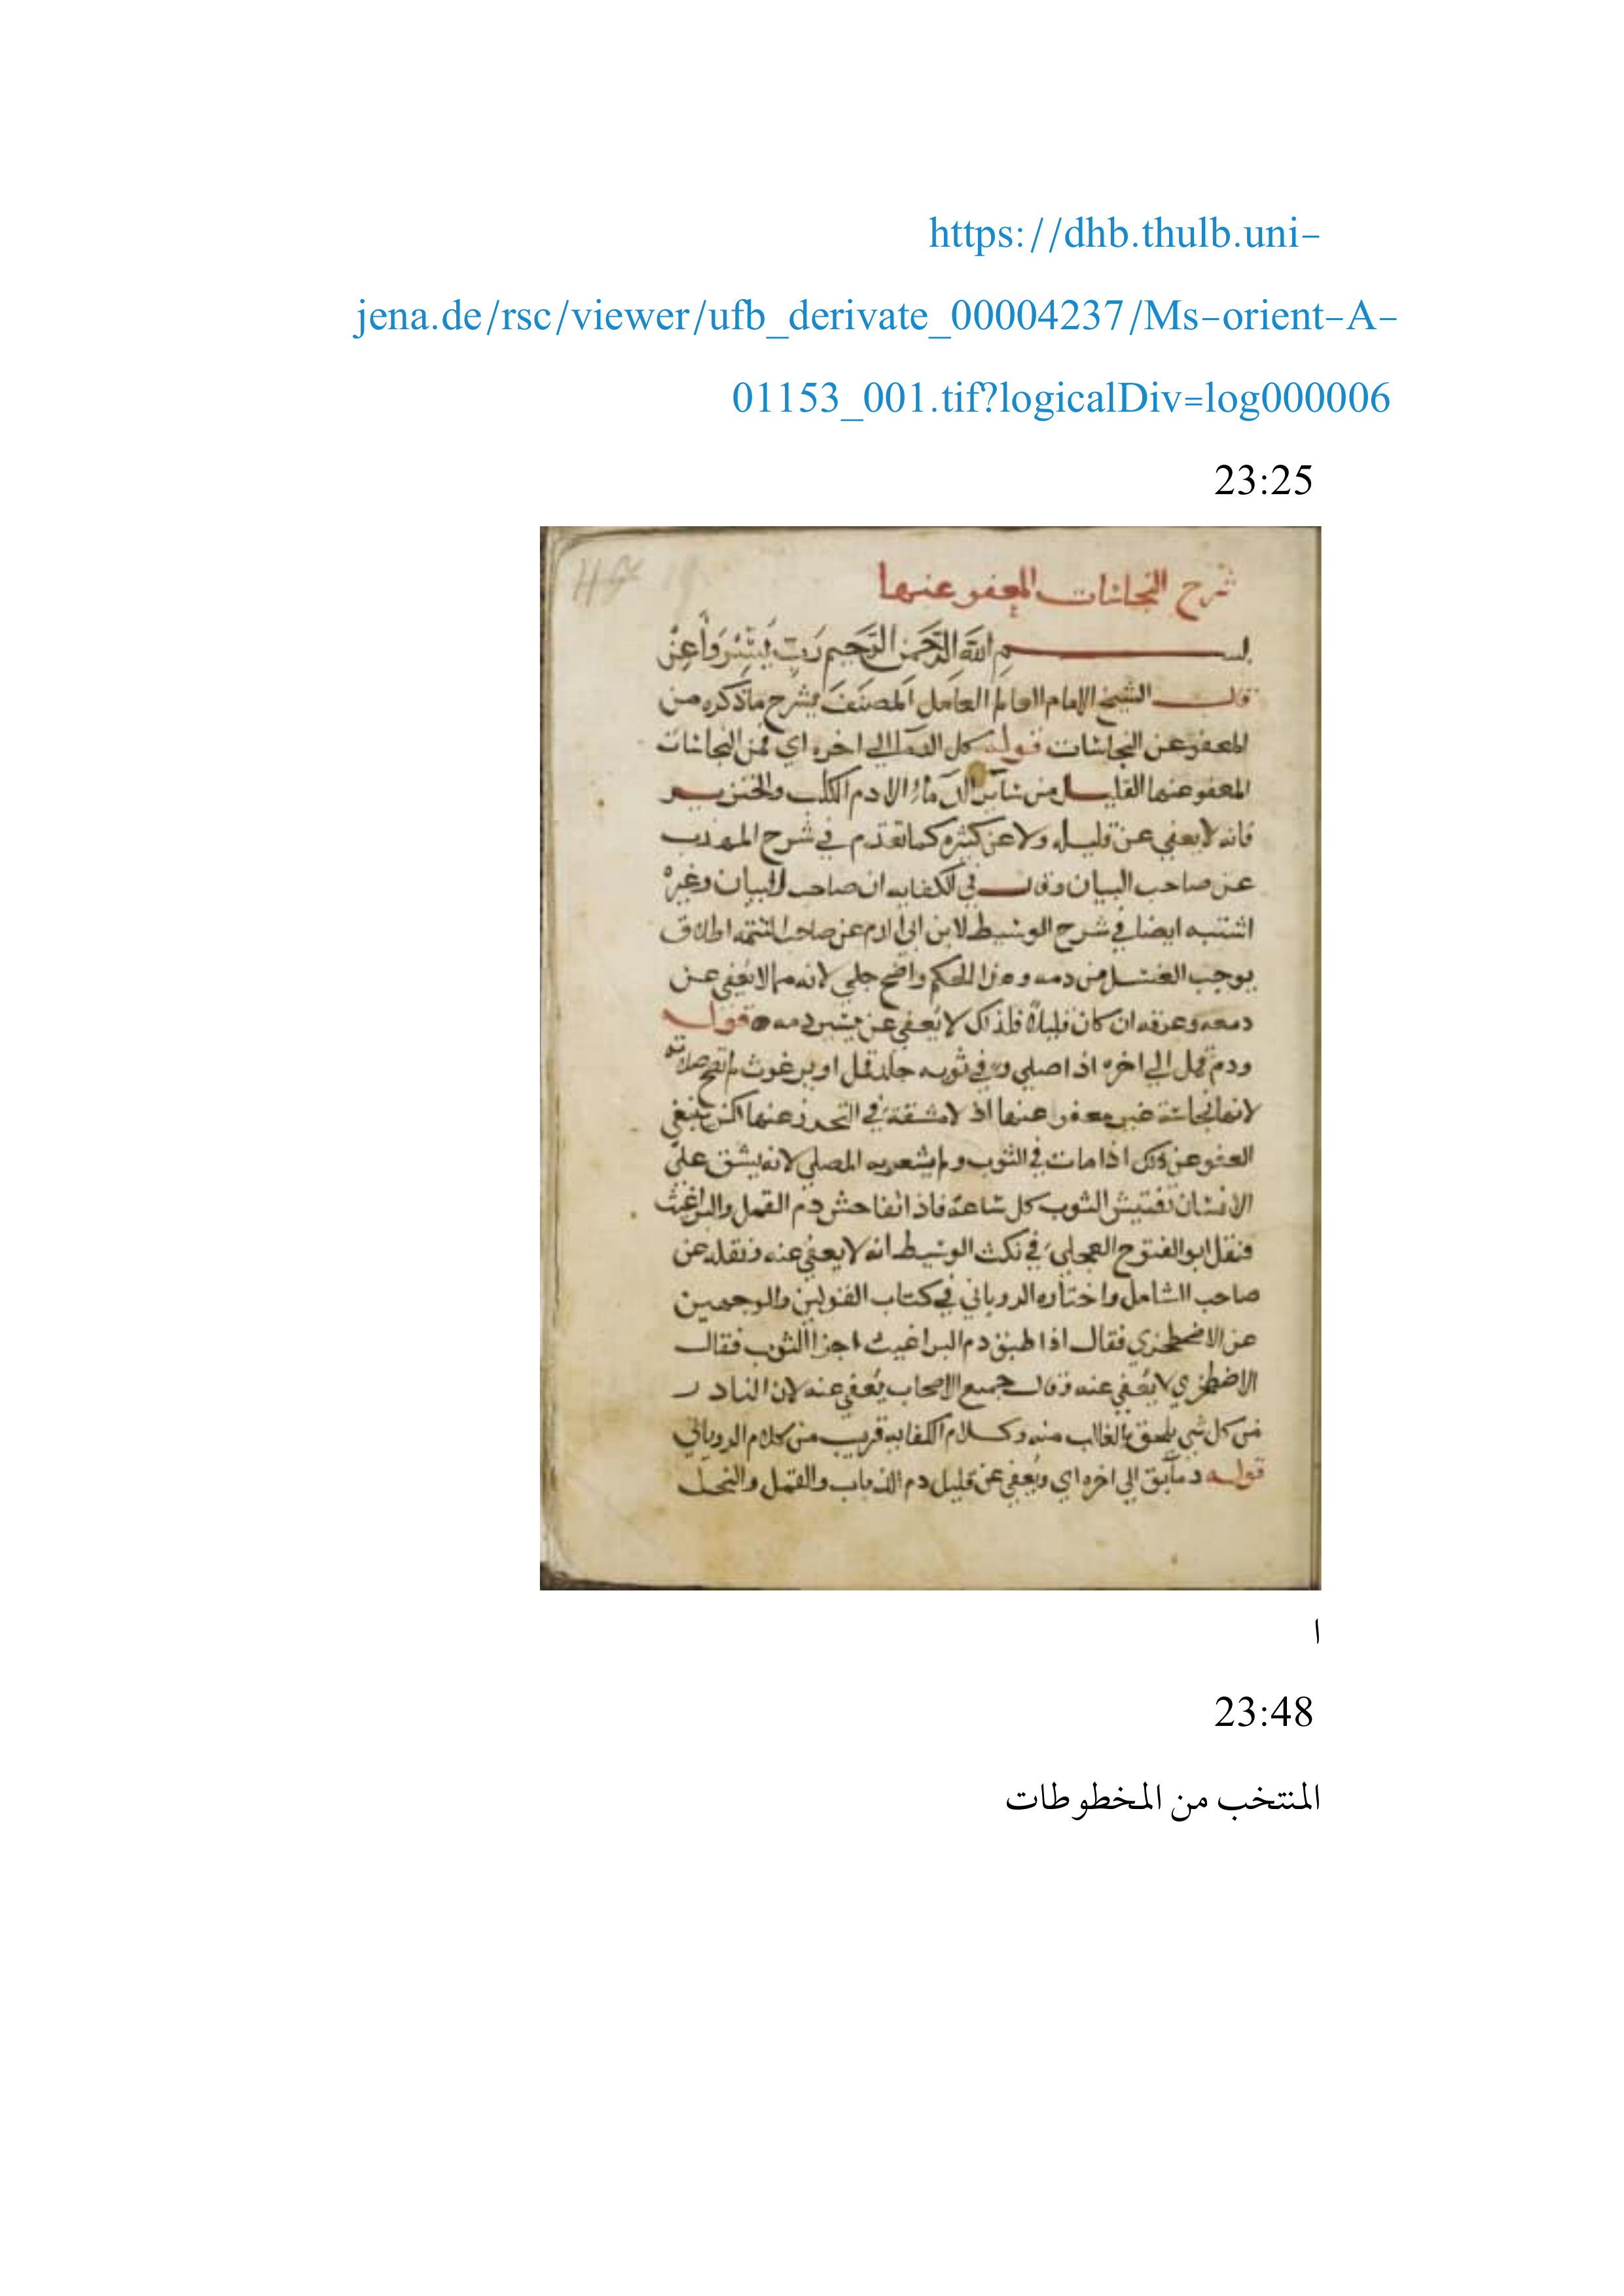 https://dhb.thulb.uni-
jena.de/rsc/viewer/ufb_derivate_00004237/Ms-orient-A-
01153_001.tif?logicalDiv=log000006
23:25
شرح النجاسات المعفو عنها
بسم الله الرحمن الرحيم رب يسر واعن
قال الشيخ الامام العالم العامل المصنف يشرح ماذكره من
المعفو عن النجاسات قوله كل الدما الي اخره اي من النجاسات
المعفو عنها القليل من سائر الدماء الا دم الكلب والخنزير
فانه لا يعفي عن قليله ولا عن كثيره كما تقدم في شرح المهذب
عن صاحب البيان وقال في الكفايه ان صاحب البيان وغيره
ايضا في شرح الوسيط لابن ابي الدم عن صاحب التتمه اطلاق
بوجب الغسل من دمه وهذا الحكم واضح جلي لانه مما لا يعفي عن
دمعه وعرقه ان كان قليلا فلذلك لا يعفي عن يسير دمه قوله
ودم قمل الي اخره اذا صلي وفي ثوبه جلد قمل او برغوث لم تصح صلاته
لانها نجاسة غير معفو عنها اذ لا مشقة في التحرز عنها لكن ينبغي
العفو عن ذلك اذا مات في الثوب ولم يشعر به المصلي لانه يشق علي
الانسان تفتيش الثوب كل ساعة فاذا تفاحش دم القمل والبراغيث
فنقل ابو الفتوح العجلي في نكت الوسيط انه لا يعفي عنه ونقله عن
صاحب الشامل واختاره الروياني في كتاب القولين والوجهين
عن الاصطخري فقال اذا طبق دم البراغيث اجزا الثوب فقال
الاصطخري لا يعفي عنه وقال جميع الاصحاب يعفي عنه لان النادر
من كل شي يلحق بالغالب منه وكلام الكفايه قريب من كلام الروياني
قوله دم بق الي اخره اي ويعفي عن قليل دم الذباب والقمل والنحل
ا
23:48
المنتخب من المخطوطات